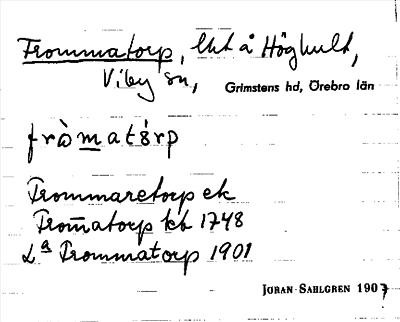 Trommatorp, lht å Höghult,
Viby sn,
Grimstens hd, Örebro län
fròmatórp
Trommaretorp ek
Trom̄atorp kb 1748
La Trommatorp 1901
JÖRAN SAHLGREN 1907